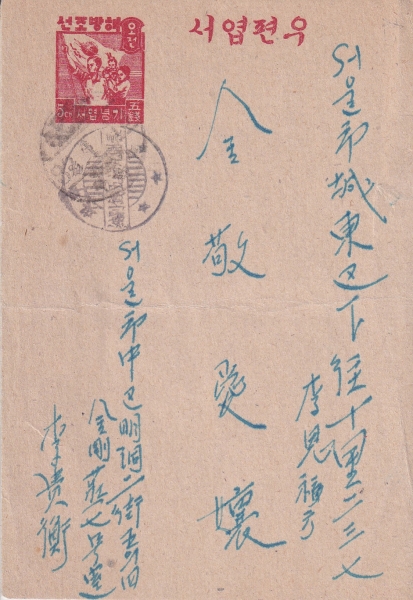 우편엽서
해방조선
오전
서울市城東区下往十里二三七
李恩福方
金敬愛孃
서울市中区明洞二街
金剛莊七号室
李貴衡